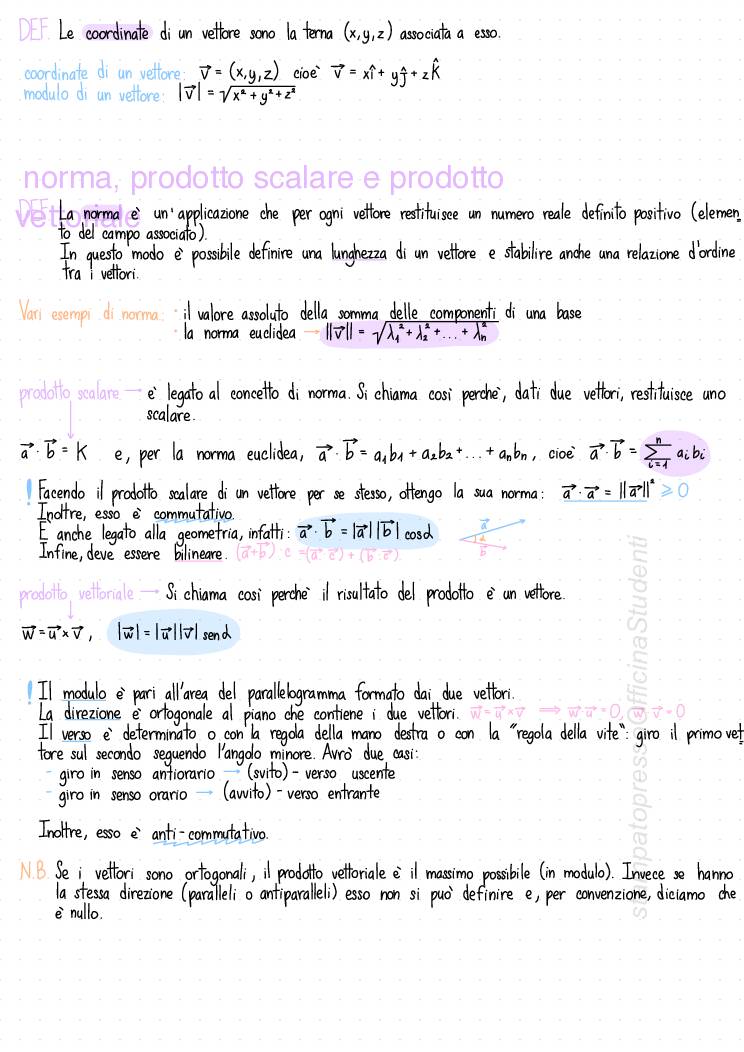 DEF. Le coordinate di un vettore sono la terna (x,y,z) associata a esso.
coordinate di un vettore: v⃗ = (x,y,z) cioè v⃗ = xî + yĵ + zk̂
modulo di un vettore: |v⃗| = √(x² + y² + z²)
norma, prodotto scalare e prodotto
vettoriale
DEF. La norma è un'applicazione che per ogni vettore restituisce un numero reale definito positivo (elemen-
to del campo associato).
In questo modo è possibile definire una lunghezza di un vettore e stabilire anche una relazione d'ordine
tra i vettori.
Vari esempi di norma: · il valore assoluto della somma delle componenti di una base
· la norma euclidea → ||v⃗|| = √(λ₁² + λ₂² + ... + λₙ²)
prodotto scalare → è legato al concetto di norma. Si chiama così perchè, dati due vettori, restituisce uno
scalare.
a⃗ · b⃗ = K e, per la norma euclidea, a⃗ · b⃗ = a₁b₁ + a₂b₂ + ... + aₙbₙ, cioè a⃗ · b⃗ = ∑ⁿᵢ₌₁ aᵢbᵢ
! Facendo il prodotto scalare di un vettore per se stesso, ottengo la sua norma: a⃗ · a⃗ = ||a⃗||² ⩾ 0
Inoltre, esso è commutativo.
È anche legato alla geometria, infatti: a⃗ · b⃗ = |a⃗| |b⃗| cosα
a⃗
α
b⃗
Infine, deve essere bilineare. (a⃗+b⃗) · c = (a⃗ · c⃗) + (b⃗ · c⃗)
prodotto vettoriale → Si chiama così perchè il risultato del prodotto è un vettore.
w⃗ = u⃗ × v⃗, |w⃗| = |u⃗| |v⃗| senα
! Il modulo è pari all'area del parallelogramma formato dai due vettori.
La direzione è ortogonale al piano che contiene i due vettori. w⃗ = u⃗ × v⃗ ⟹ w⃗ · u⃗ = 0, w⃗ · v⃗ = 0
Il verso è determinato o con la regola della mano destra o con la "regola della vite": giro il primo vet-
tore sul secondo seguendo l'angolo minore. Avrò due casi:
- giro in senso antiorario → (svito) - verso uscente
- giro in senso orario → (avvito) - verso entrante
Inoltre, esso è anti-commutativo.
N.B. Se i vettori sono ortogonali, il prodotto vettoriale è il massimo possibile (in modulo). Invece se hanno
la stessa direzione (paralleli o antiparalleli) esso non si può definire e, per convenzione, diciamo che
è nullo.
stampatopressoOfficinaStudenti